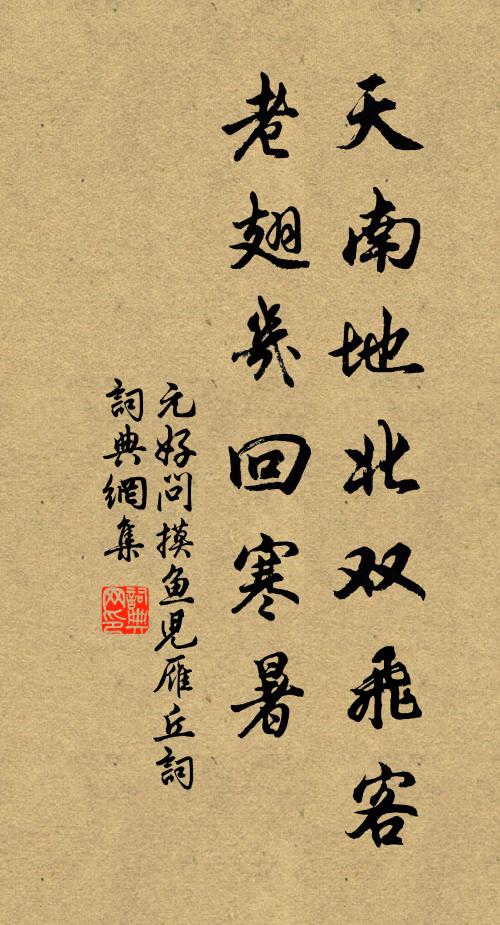 天南地北双飛客
老翅幾回寒暑
元好问摸鱼兒雁丘詞
詞典網集
詞典网印